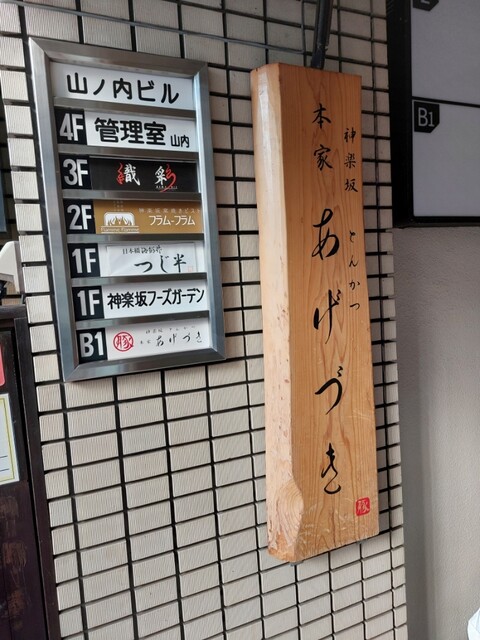 山ノ内ビル
4F 管理室 山内
3F 織彩
2F フラム・フラム
1F 日本橋海鮮丼 つじ半
1F 神楽坂フーズガーデン
B1 豚 神楽坂 とんかつ 本家 あげづき
神楽坂 とんかつ
本家 あげづき
豚
B1